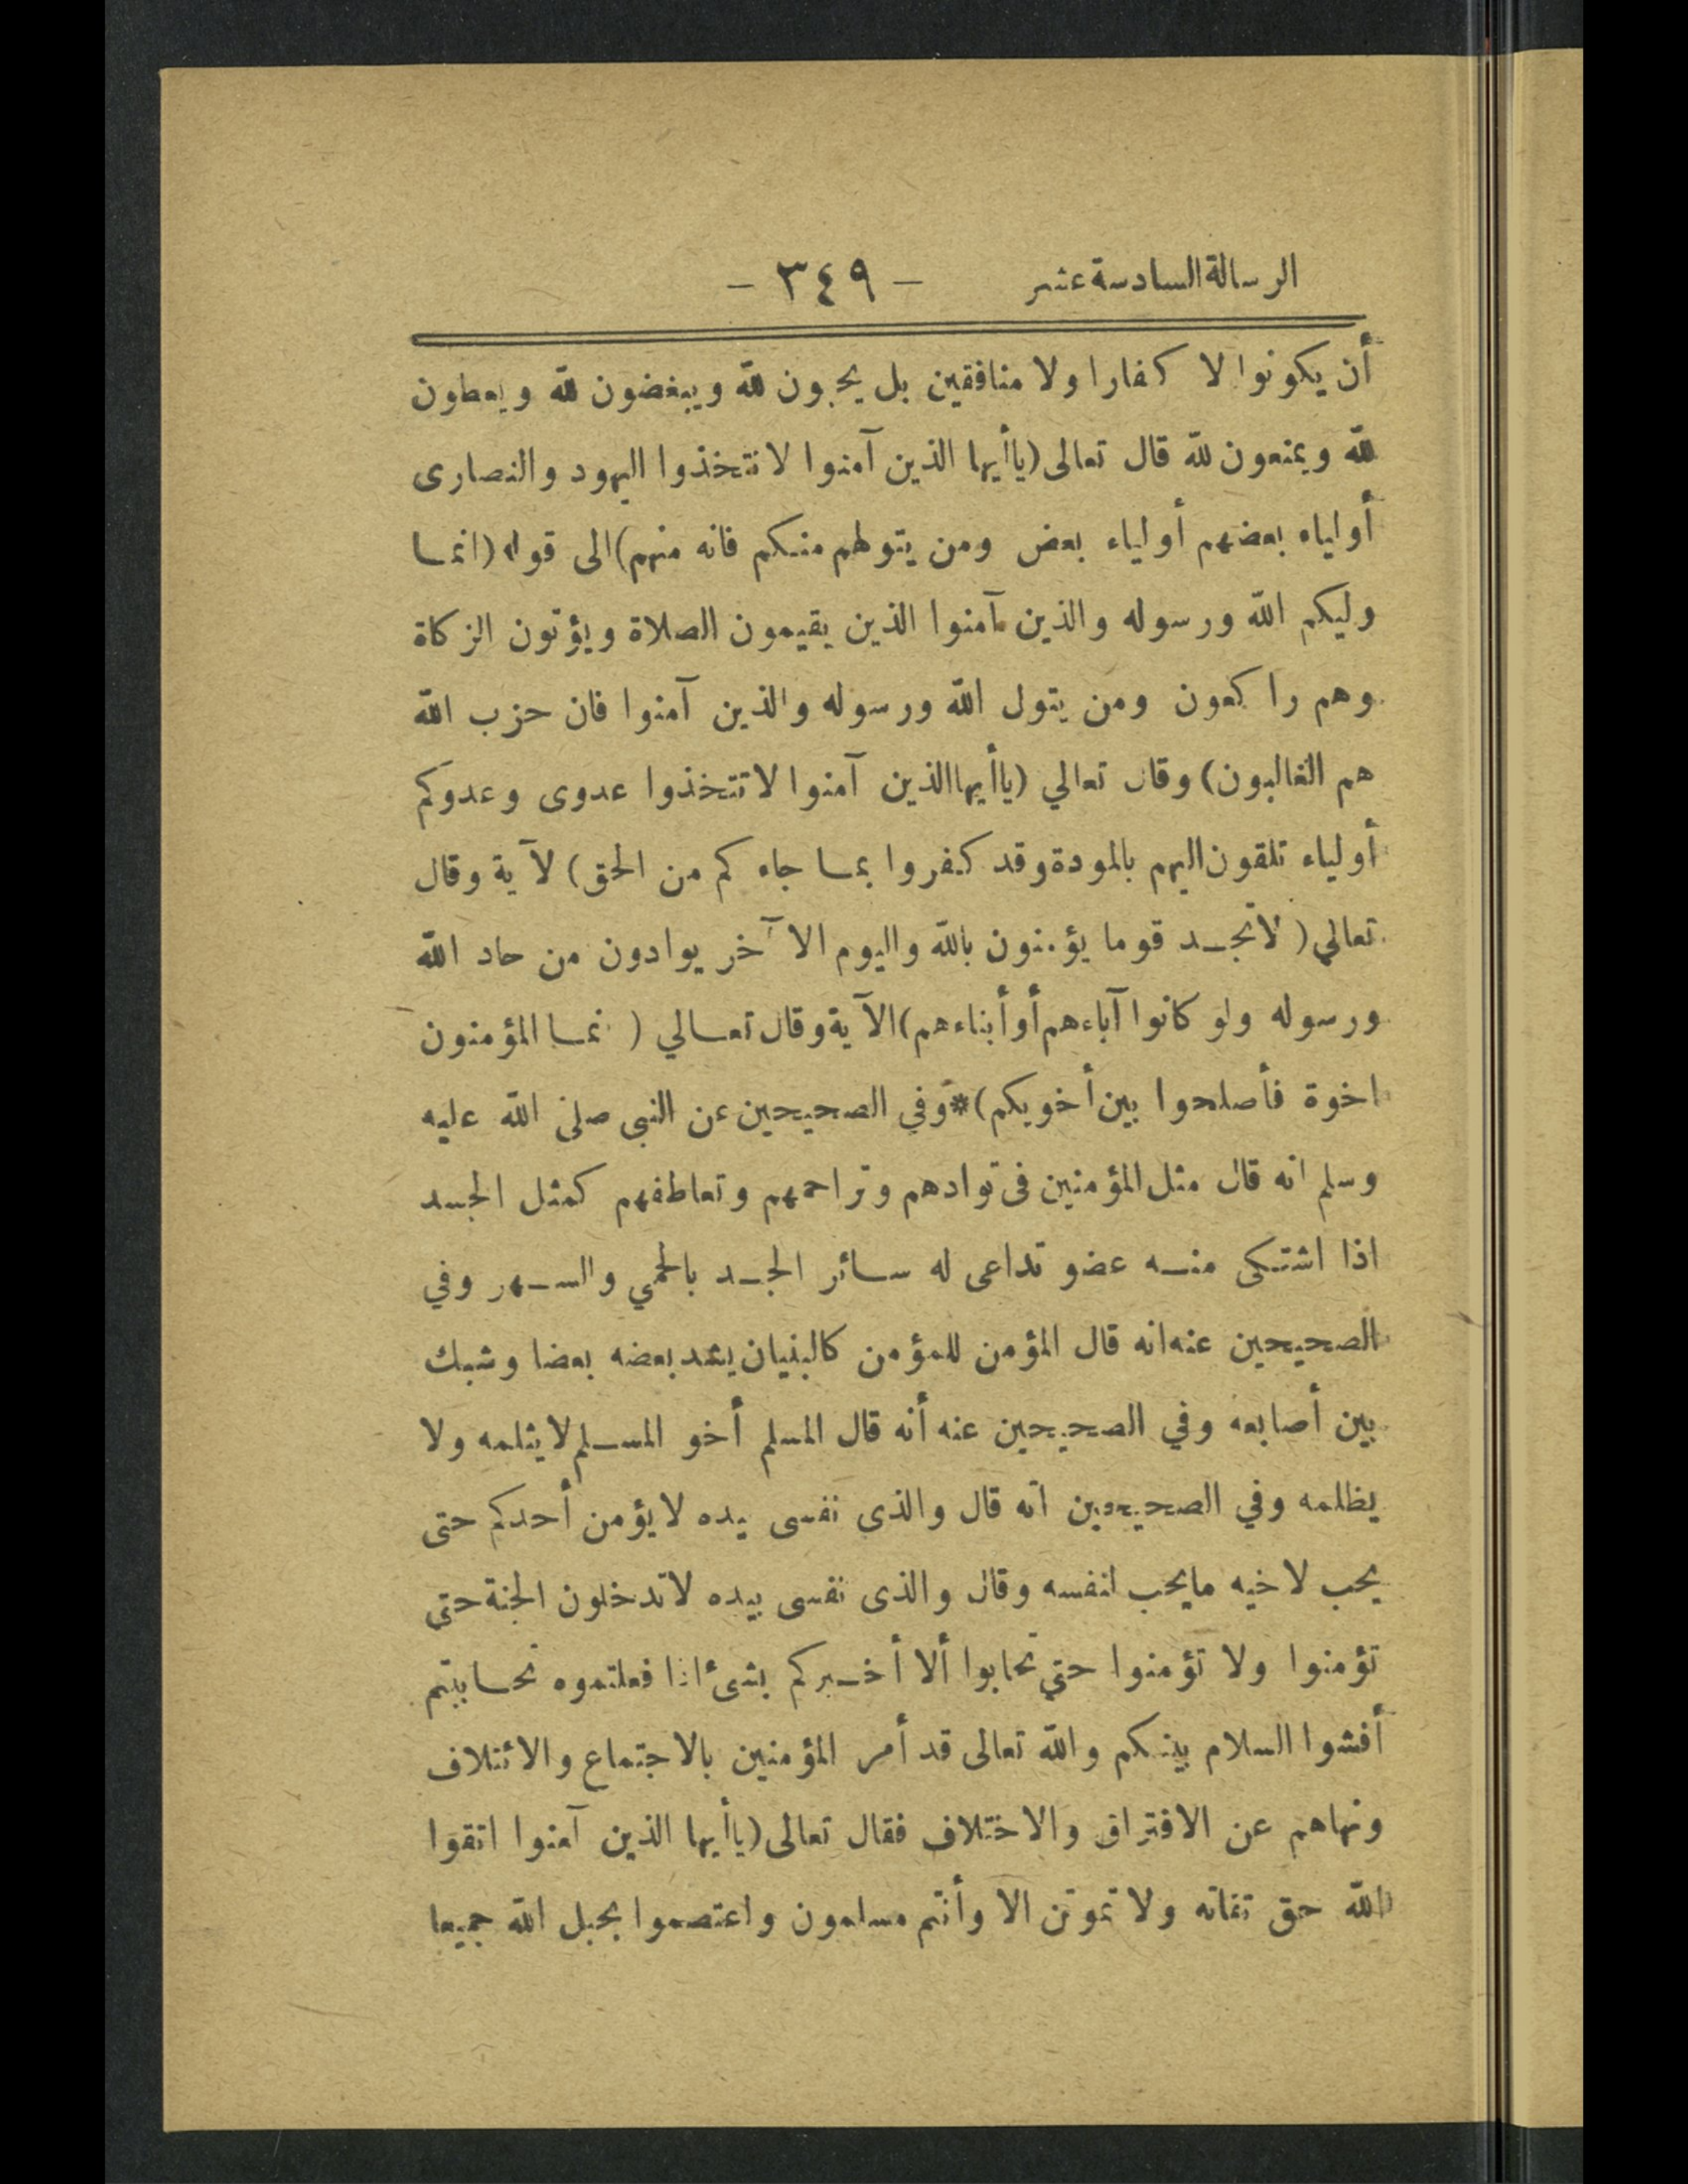 الرسالة السادسة عشر - ٣٤٩ -
أن يكونوا لا كفارا ولا منافقين بل يحبون لله ويبغضون لله ويعطون
لله ويمنعون لله قال تعالى (ياأيها الذين آمنوا لا تتخذوا اليهود والنصارى
أولياء بعضهم أولياء بعض ومن يتولهم منكم فانه منهم) الى قوله (انما
وليكم الله ورسوله والذين آمنوا الذين يقيمون الصلاة ويؤتون الزكاة
وهم راكعون ومن يتول الله ورسوله والذين آمنوا فان حزب الله
هم الغالبون) وقال تعالي (ياأيها الذين آمنوا لا تتخذوا عدوى وعدوكم
أولياء تلقون اليهم بالمودة وقد كفروا بما جاءكم من الحق) لآية وقال
تعالي (لا تجد قوما يؤمنون بالله واليوم الآخر يوادون من حاد الله
ورسوله ولو كانوا آباءهم أو أبناءهم) الآية وقال تعالي (نما المؤمنون
اخوة فأصلحوا بين أخويكم) * وفي الصحيحين عن النبي صلى الله عليه
وسلم انه قال مثل المؤمنين فى توادهم وتراحمهم وتعاطفهم كمثل الجسد
اذا اشتكى منه عضو تداعى له سائر الجسد بالحمي والسهر وفي
الصحيحين عنه انه قال المؤمن للمؤمن كالبنيان يشد بعضه بعضا وشبك
بين أصابعه وفي الصحيحين عنه أنه قال المسلم أخو المسلم لا يثلمه ولا
يظلمه وفي الصحيحين انه قال والذى نفسى بيده لا يؤمن أحدكم حتى
يحب لاخيه ما يحب لنفسه وقال والذى نفسى بيده لا تدخلون الجنة حتى
تؤمنوا ولا تؤمنوا حتي تحابوا ألا أخبركم بشئ اذا فعلتموه تحاببتم
أفشوا السلام بينكم والله تعالى قد أمر المؤمنين بالاجتماع والائتلاف
ونهاهم عن الافتراق والاختلاف فقال تعالى (ياأيها الذين آمنوا اتقوا
الله حق تقاته ولا تموتن الا وأنتم مسلمون واعتصموا بحبل الله جميعا